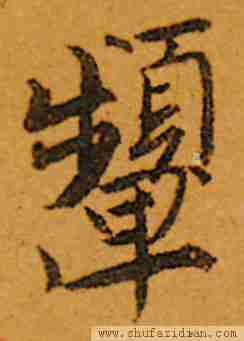 顰
www.shufazidian.com